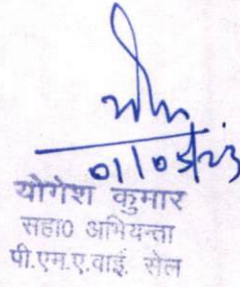 01/05/23
योगेश कुमार
सहा0 अभियन्ता
पी.एम.ए.वाई. सेल